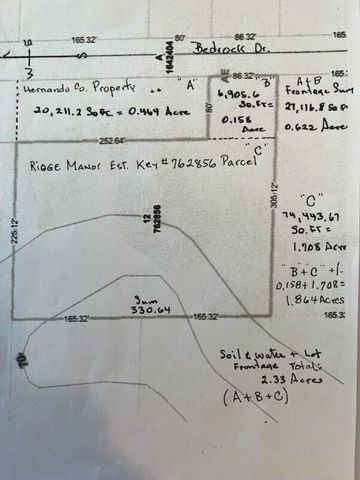 165.32'
80'
165.32'
165.
S
A
1642404
Bedrock Dr.
AE
86.32'
86.32'
Hernando Co. Property .. "A"
20,211.2 SqFt. = 0.464 Acre
80'
"B"
6,905.6
Sq.Ft=
0.158
Acre
A+B
Frontage Sum
27,116.8 SqFt
0.622 Acre
252.64'
Ridge Manor Est. Key # 762856 Parcel "C"
"C"
74,443.67
Sq.Ft=
1.708 Acre
225.12'
12
762856
305.12'
"B+C" +/-
0.158+1.708=
1.864 Acres
Sum
330.64
165.32'
165.32'
165.3
70
Soil & Water + Lot
Frontage Total:
2.33 Acres
(A+B+C)